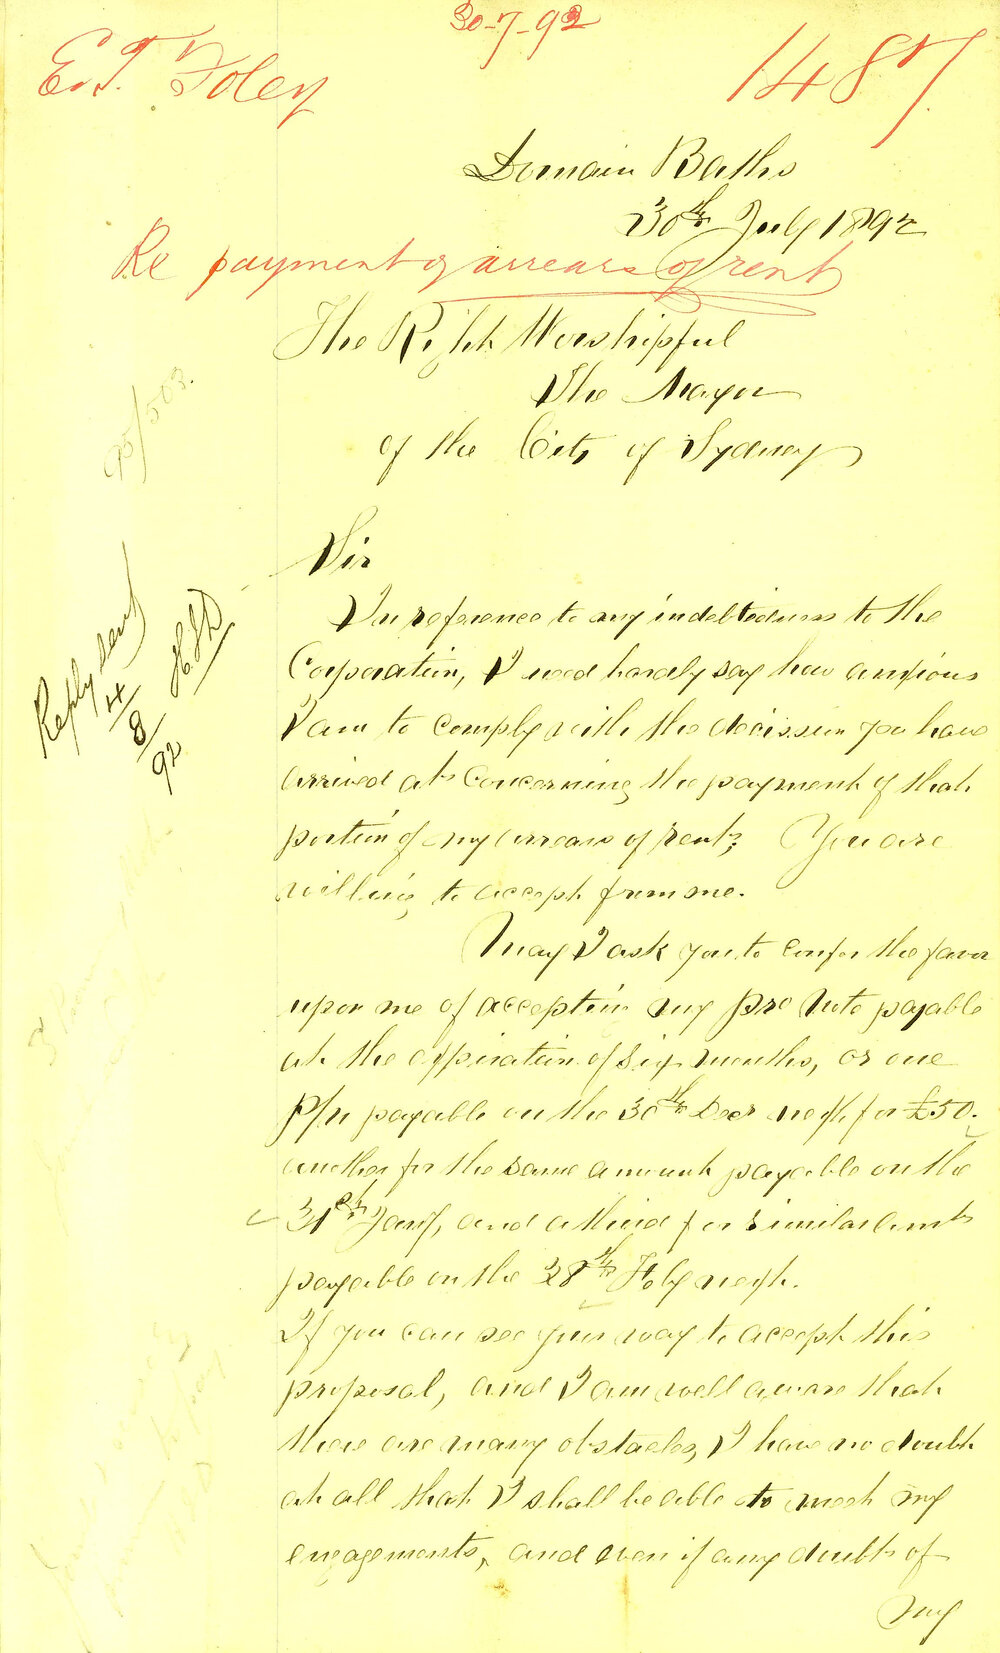 30-7-92
E.T. Foley
1487
Domain Baths
30th July 1892
Re payment of arrears of rent
The Right Worshipful
The Mayor
of the City of Sydney
95/503.
Reply sent
4/8/92
Sir
In reference to my indebtedness to the
Corporation, I need hardly say how anxious
I am to comply with the decission you have
arrived at concerning the payment of that
portion of my arrears of rent; You are
willing to accept from me.
May I ask you to confer the favor
upon me of accepting my pro note payable
at the expiration of six months, or one
P/n payable on the 30th Decr next for £50.
another for the same amount payable on the
31st Jany, and a third for similar amt
payable on the 28th Feby next.
If you can see your way to accept this
proposal, and I am well aware that
there are many obstacles, I have no doubt
at all that I shall be able to meet my
engagements, and even if any doubt of
my